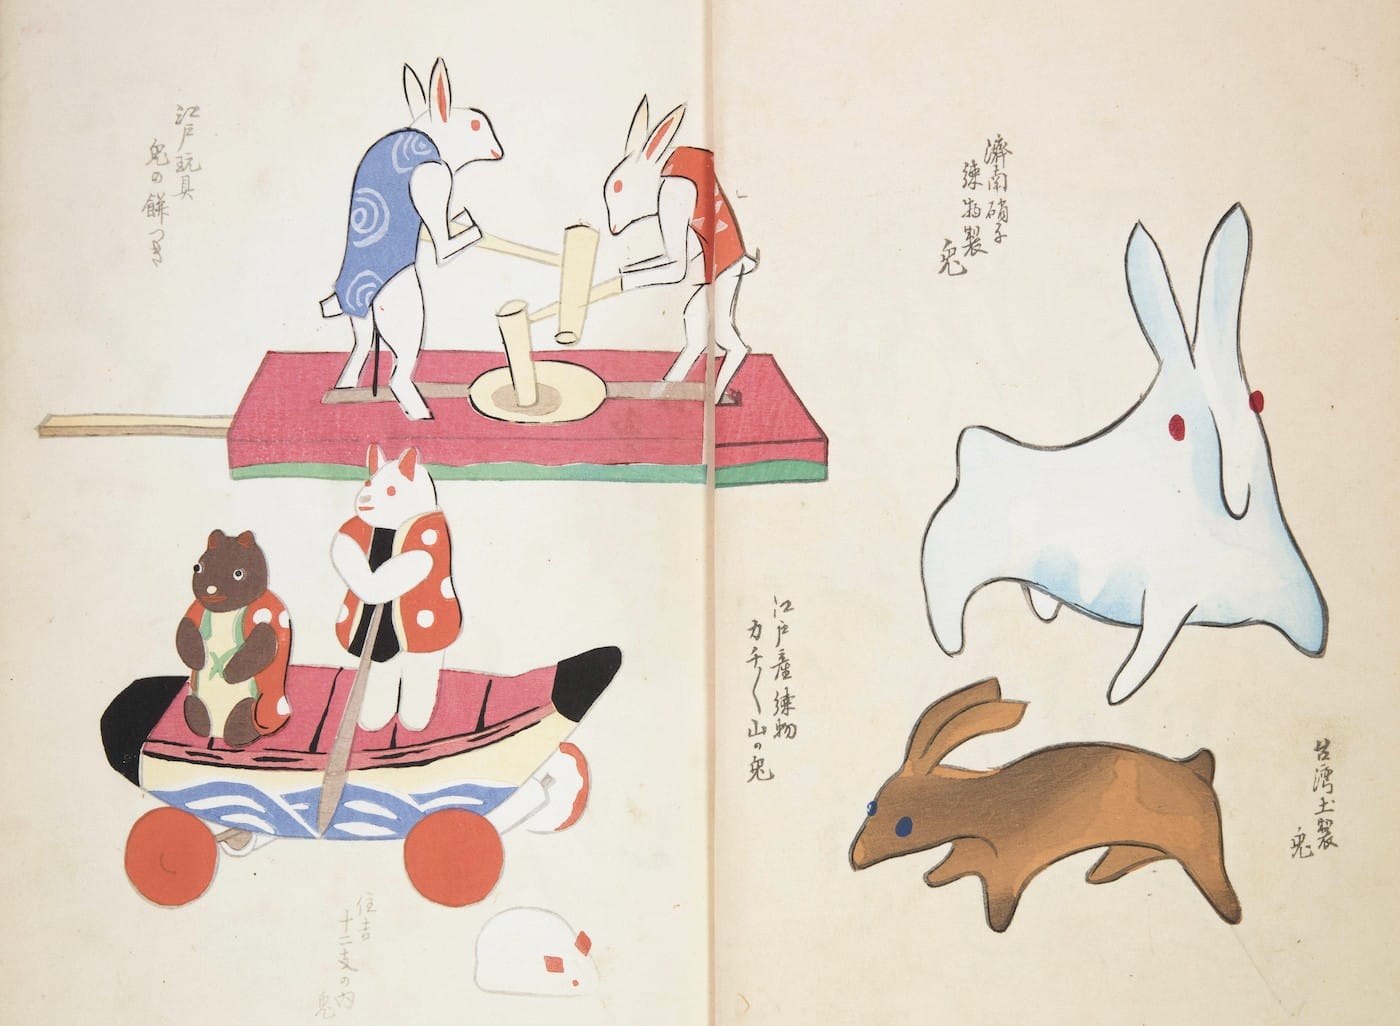 濟南硝子
練物製
兎
台湾土製
兎
江戸産練物
カチ〱山の兎
江戸玩具
兎の餅つき
住吉
十二支の内
兎